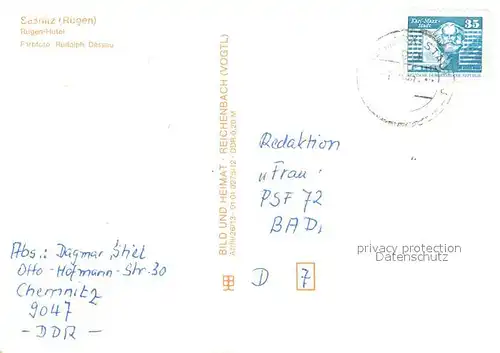 Saßnitz (Rügen)
Rügen-Hotel
Farbfoto: Rudolph, Dessau
BILD UND HEIMAT · REICHENBACH (VOGTL)
DDR 0,20 M
Karl-Marx-
Stadt
35
DEUTSCHE DEMOKRATISCHE REPUBLIK
Redaktion
„Frau
PSF 72
BAD,
privacy protection
Datenschutz
D 7
Abs.: Dagmar Stiel
Otto-Hofmann-Str. 30
Chemnitz
9047
- DDR -